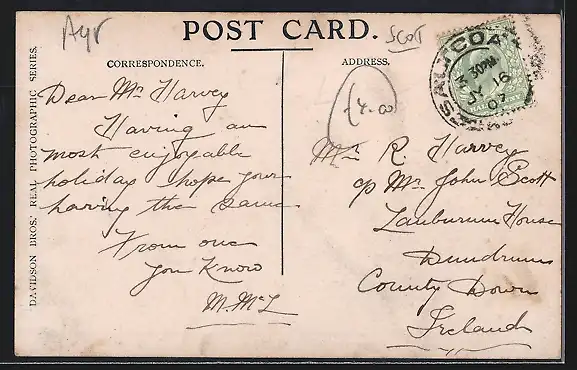 Ayr
POST CARD.
SCOT
CORRESPONDENCE.
ADDRESS.
DAVIDSON BROS.' REAL PHOTOGRAPHIC SERIES.
£4.00
Dear Mr Harvey
Having an
most enjoyable
holiday hope your
having the same
From one
you Know
M. McL
Mr R. Harvey
c/o Mr John Scott
Lauburnum House
Dundrum
County Down
Ireland
SALTCOATS
30PM
JY 16
07